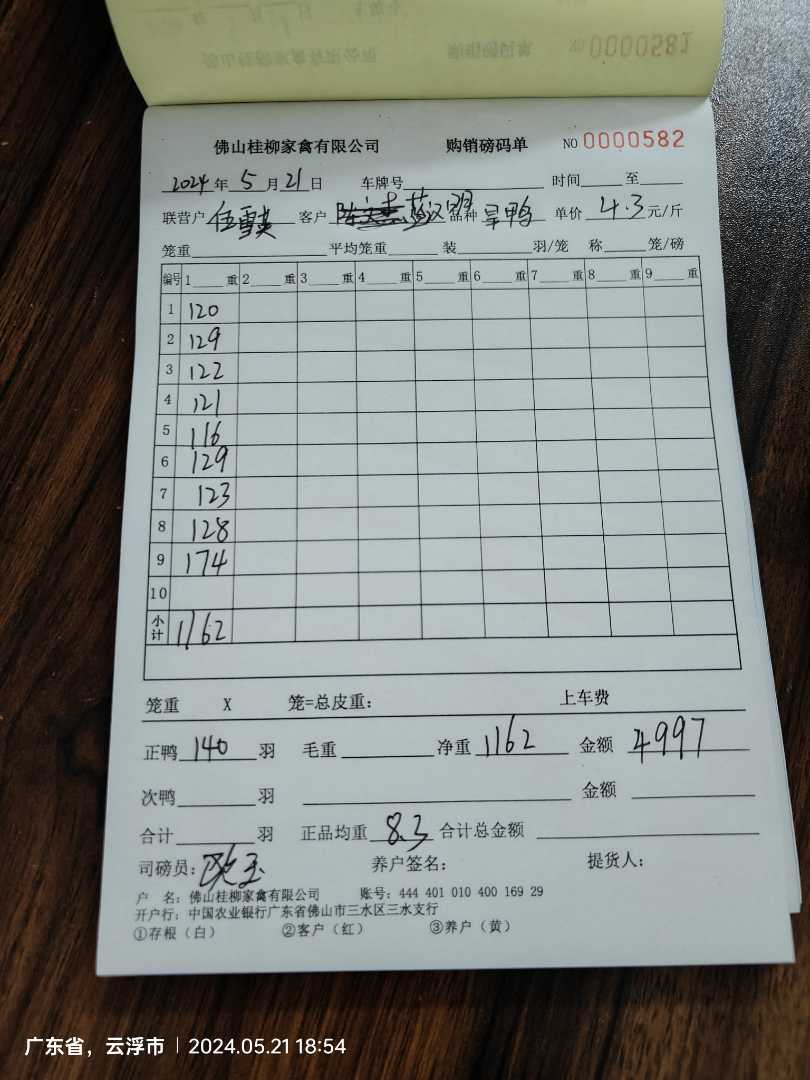 佛山桂柳家禽有限公司 购销磅码单 NO 0000582
2024年5月21日 车牌号 时间 至
联营户 伍雪英 客户 汉明 品种 旱鸭 单价 4.3 元/斤
笼重 平均笼重 装 羽/笼 称 笼/磅
编号 1 重 2 重 3 重 4 重 5 重 6 重 7 重 8 重 9 重
1 120
2 129
3 122
4 121
5 116
6 129
7 123
8 128
9 174
10
小计 1162
笼重 X 笼=总皮重: 上车费
正鸭 140 羽 毛重 净重 1162 金额 4997
次鸭 羽 金额
合计 羽 正品均重 8.3 合计总金额
司磅员: 养户签名: 提货人:
户 名: 佛山桂柳家禽有限公司 账号: 444 401 010 400 169 29
开户行: 中国农业银行广东省佛山市三水区三水支行
①存根(白) ②客户(红) ③养户(黄)
广东省，云浮市 | 2024.05.21 18:54